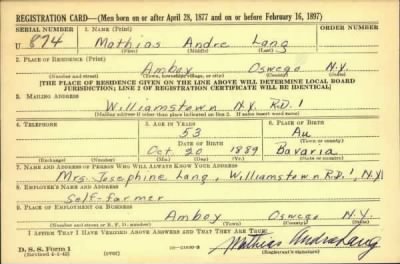 REGISTRATION CARD—(Men born on or after April 28, 1877 and on or before February 16, 1897)
SERIAL NUMBER 1. NAME (Print) ORDER NUMBER
U 874 Mathias Andre Lang
(First) (Middle) (Last)
2. PLACE OF RESIDENCE (Print)
Amboy Oswego N.Y.
(Number and street) (Town, township, village, or city) (County) (State)
[THE PLACE OF RESIDENCE GIVEN ON THE LINE ABOVE WILL DETERMINE LOCAL BOARD
JURISDICTION; LINE 2 OF REGISTRATION CERTIFICATE WILL BE IDENTICAL]
3. MAILING ADDRESS
Williamstown N.Y. R.D. 1
[Mailing address if other than place indicated on line 2. If same insert word same]
4. TELEPHONE 5. AGE IN YEARS 6. PLACE OF BIRTH
53 Au
DATE OF BIRTH (Town or county)
Oct 20 1889 Bavaria
(Exchange) (Number) (Mo.) (Day) (Yr.) (State or country)
7. NAME AND ADDRESS OF PERSON WHO WILL ALWAYS KNOW YOUR ADDRESS
Mrs. Josephine Lang, Williamstown R.D. 1, N.Y.
8. EMPLOYER'S NAME AND ADDRESS
Self-farmer
9. PLACE OF EMPLOYMENT OR BUSINESS
Amboy Oswego N.Y.
(Number and street or R. F. D. number) (Town) (County) (State)
I AFFIRM THAT I HAVE VERIFIED ABOVE ANSWERS AND THAT THEY ARE TRUE.
D. S. S. Form 1 Mathias Andre Lang
(Revised 4-1-42) (over) (Registrant's signature)